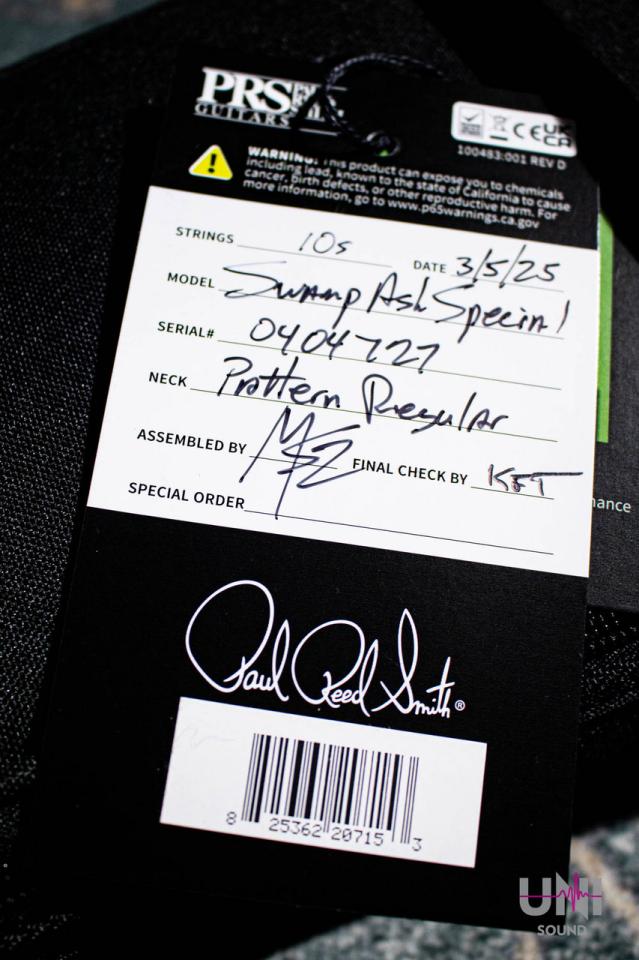 PRS
GUITARS
CE UK CA
100483:001 REV D
WARNING: This product can expose you to chemicals
including lead, known to the state of California to cause
cancer, birth defects, or other reproductive harm. For
more information, go to www.p65warnings.ca.gov
STRINGS 10s DATE 3/5/25
MODEL Swamp Ash Special
SERIAL# 0404727
NECK Pattern Regular
ASSEMBLED BY FINAL CHECK BY KET
SPECIAL ORDER
mance
Paul Reed Smith®
8 25362 20715 3
UNI
SOUND